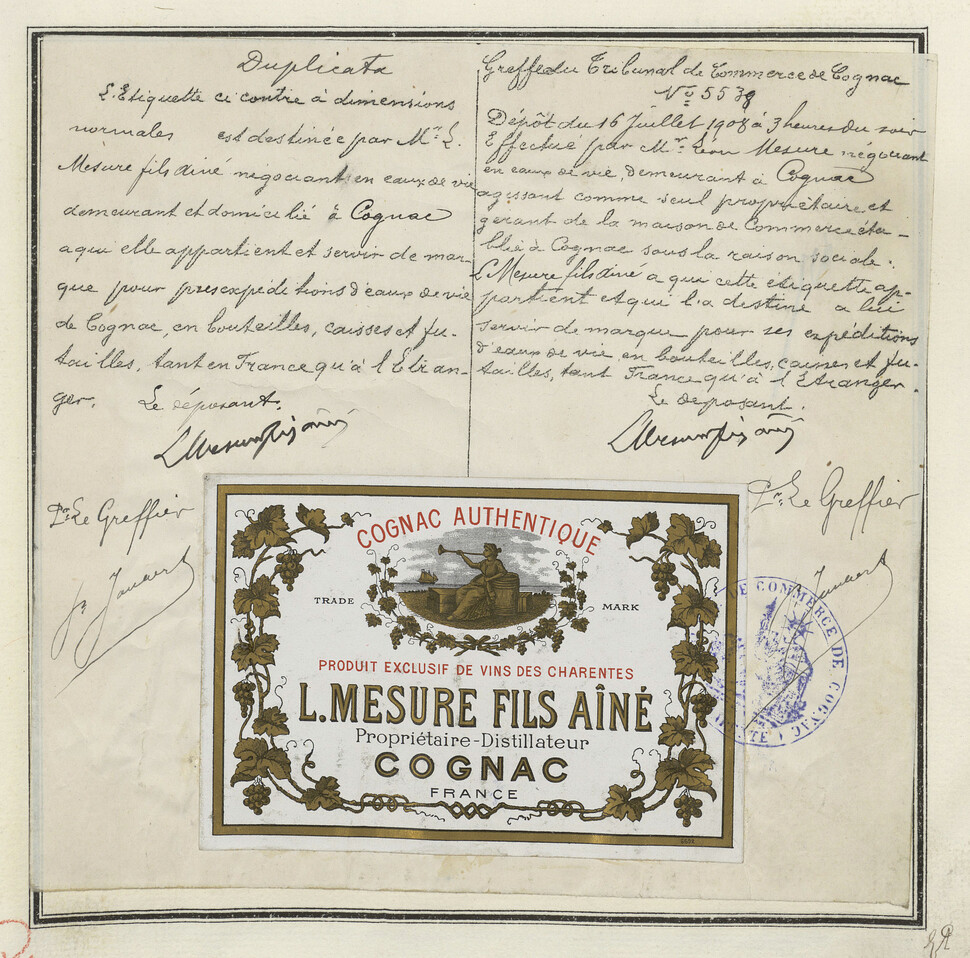 Duplicata
L'Etiquette ci contre à dimensions
normales est destinée par Mr. L.
Mesure fils aîné négociant en eaux de vie
demeurant et domicilié à Cognac
a qui elle appartient et servir de mar-
que pour ses expéditions d'eaux de vie
de Cognac, en bouteilles, caisses et fu-
tailles, tant en France qu'à l'Etran-
ger.
Le déposant.
L Mesure fils aîné
Pr. Le Greffier
Greffe du Tribunal de Commerce de Cognac
No 5539
Dépôt du 16 Juillet 1908 à 3 heures du soir
Effectué par Mr. Léon Mesure négociant
en eaux de vie, demeurant à Cognac
agissant comme seul propriétaire et
gérant de la maison de Commerce éta-
blie à Cognac sous la raison sociale :
L Mesure fils aîné a qui cette étiquette ap-
partient et qui l'a destine a lui
servir de marque pour ses expéditions
d'eaux de vie, en bouteilles, caisses et fu-
tailles, tant France qu'à l'Etranger.
Le deposant.
L Mesure fils aîné
Pr. Le Greffier
COGNAC AUTHENTIQUE
TRADE MARK
PRODUIT EXCLUSIF DE VINS DES CHARENTES
L. MESURE FILS AÎNÉ
Propriétaire-Distillateur
COGNAC
FRANCE
DE COMMERCE DE COGNAC